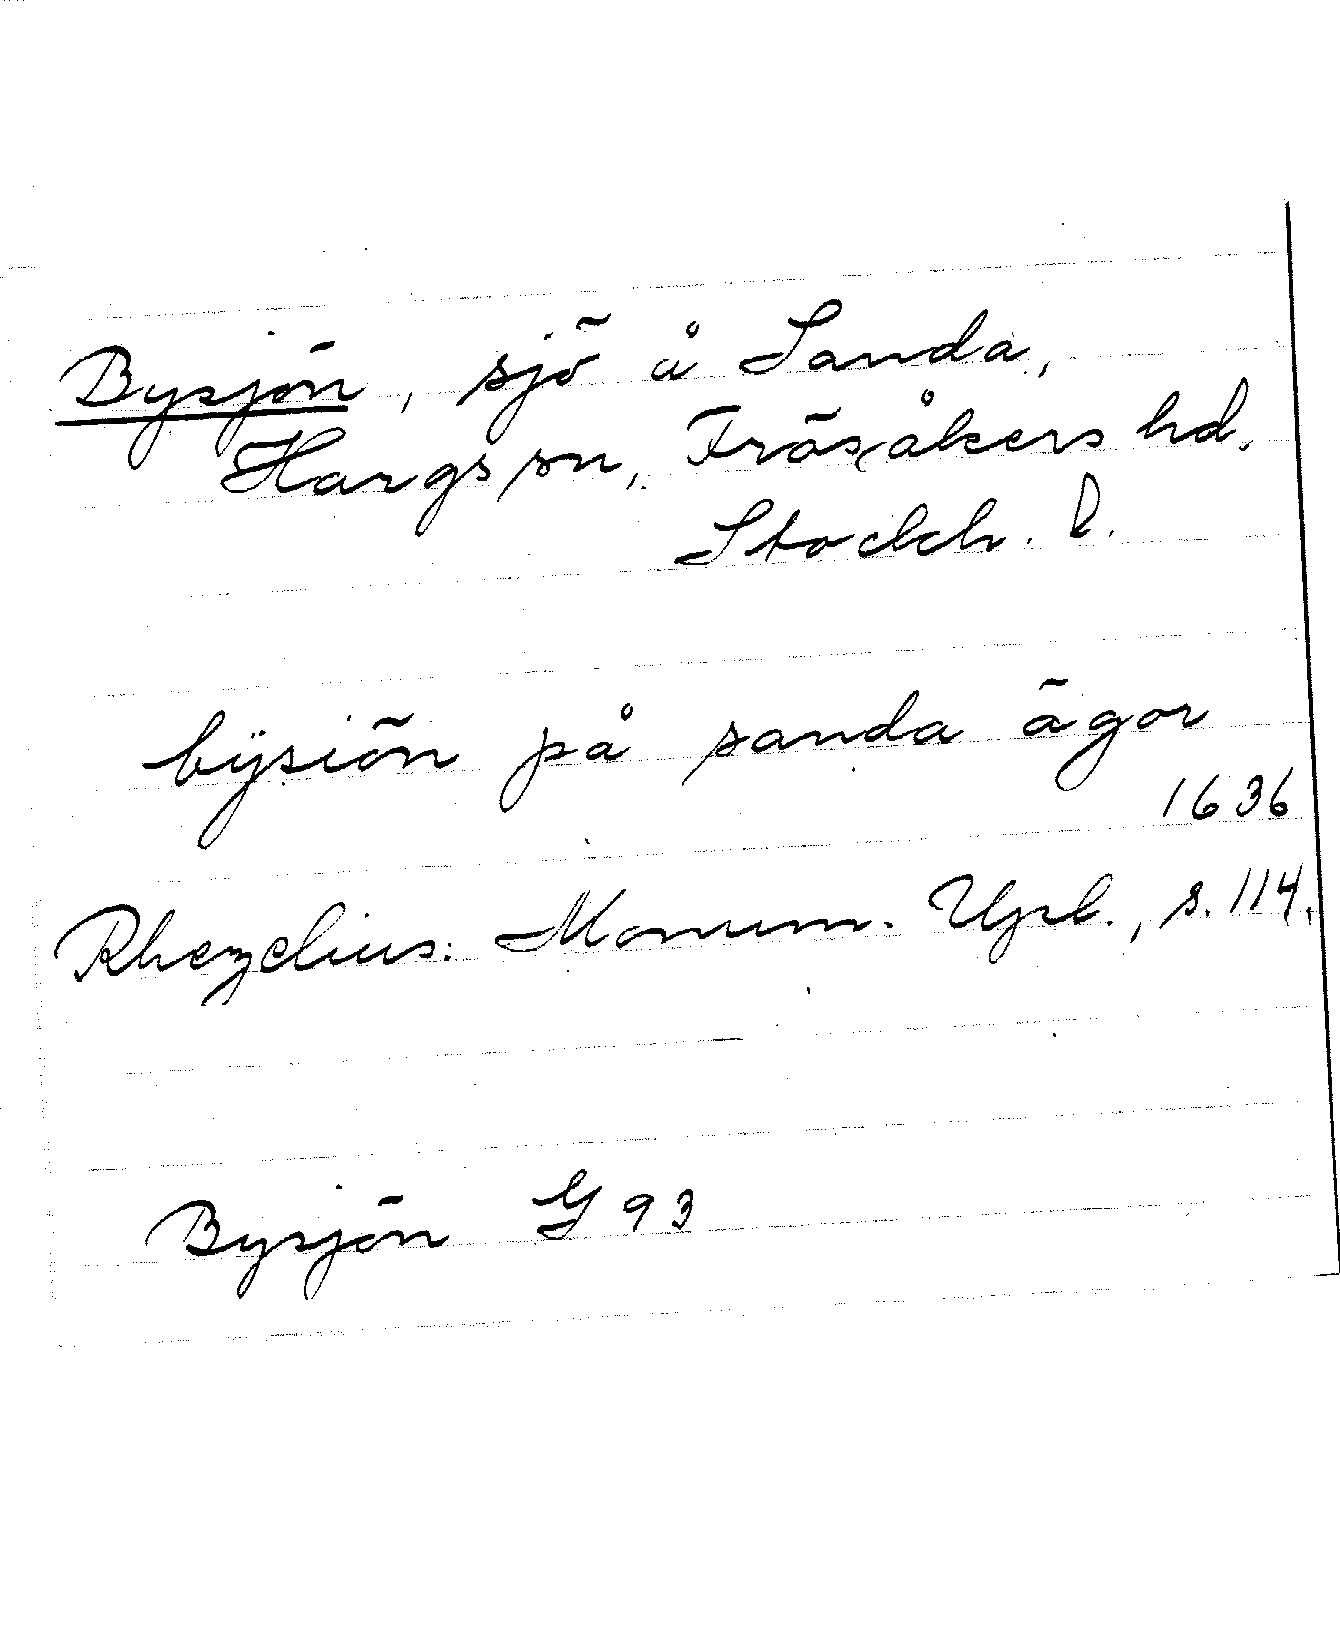 Bysjön, sjö å Sanda,
Hargs sn, Frösåkers hd.
Stockh. l.
bÿsiön på sanda ägor
1636
Rhezelius: Monum. Upl., s. 114.
Bysjön G 93